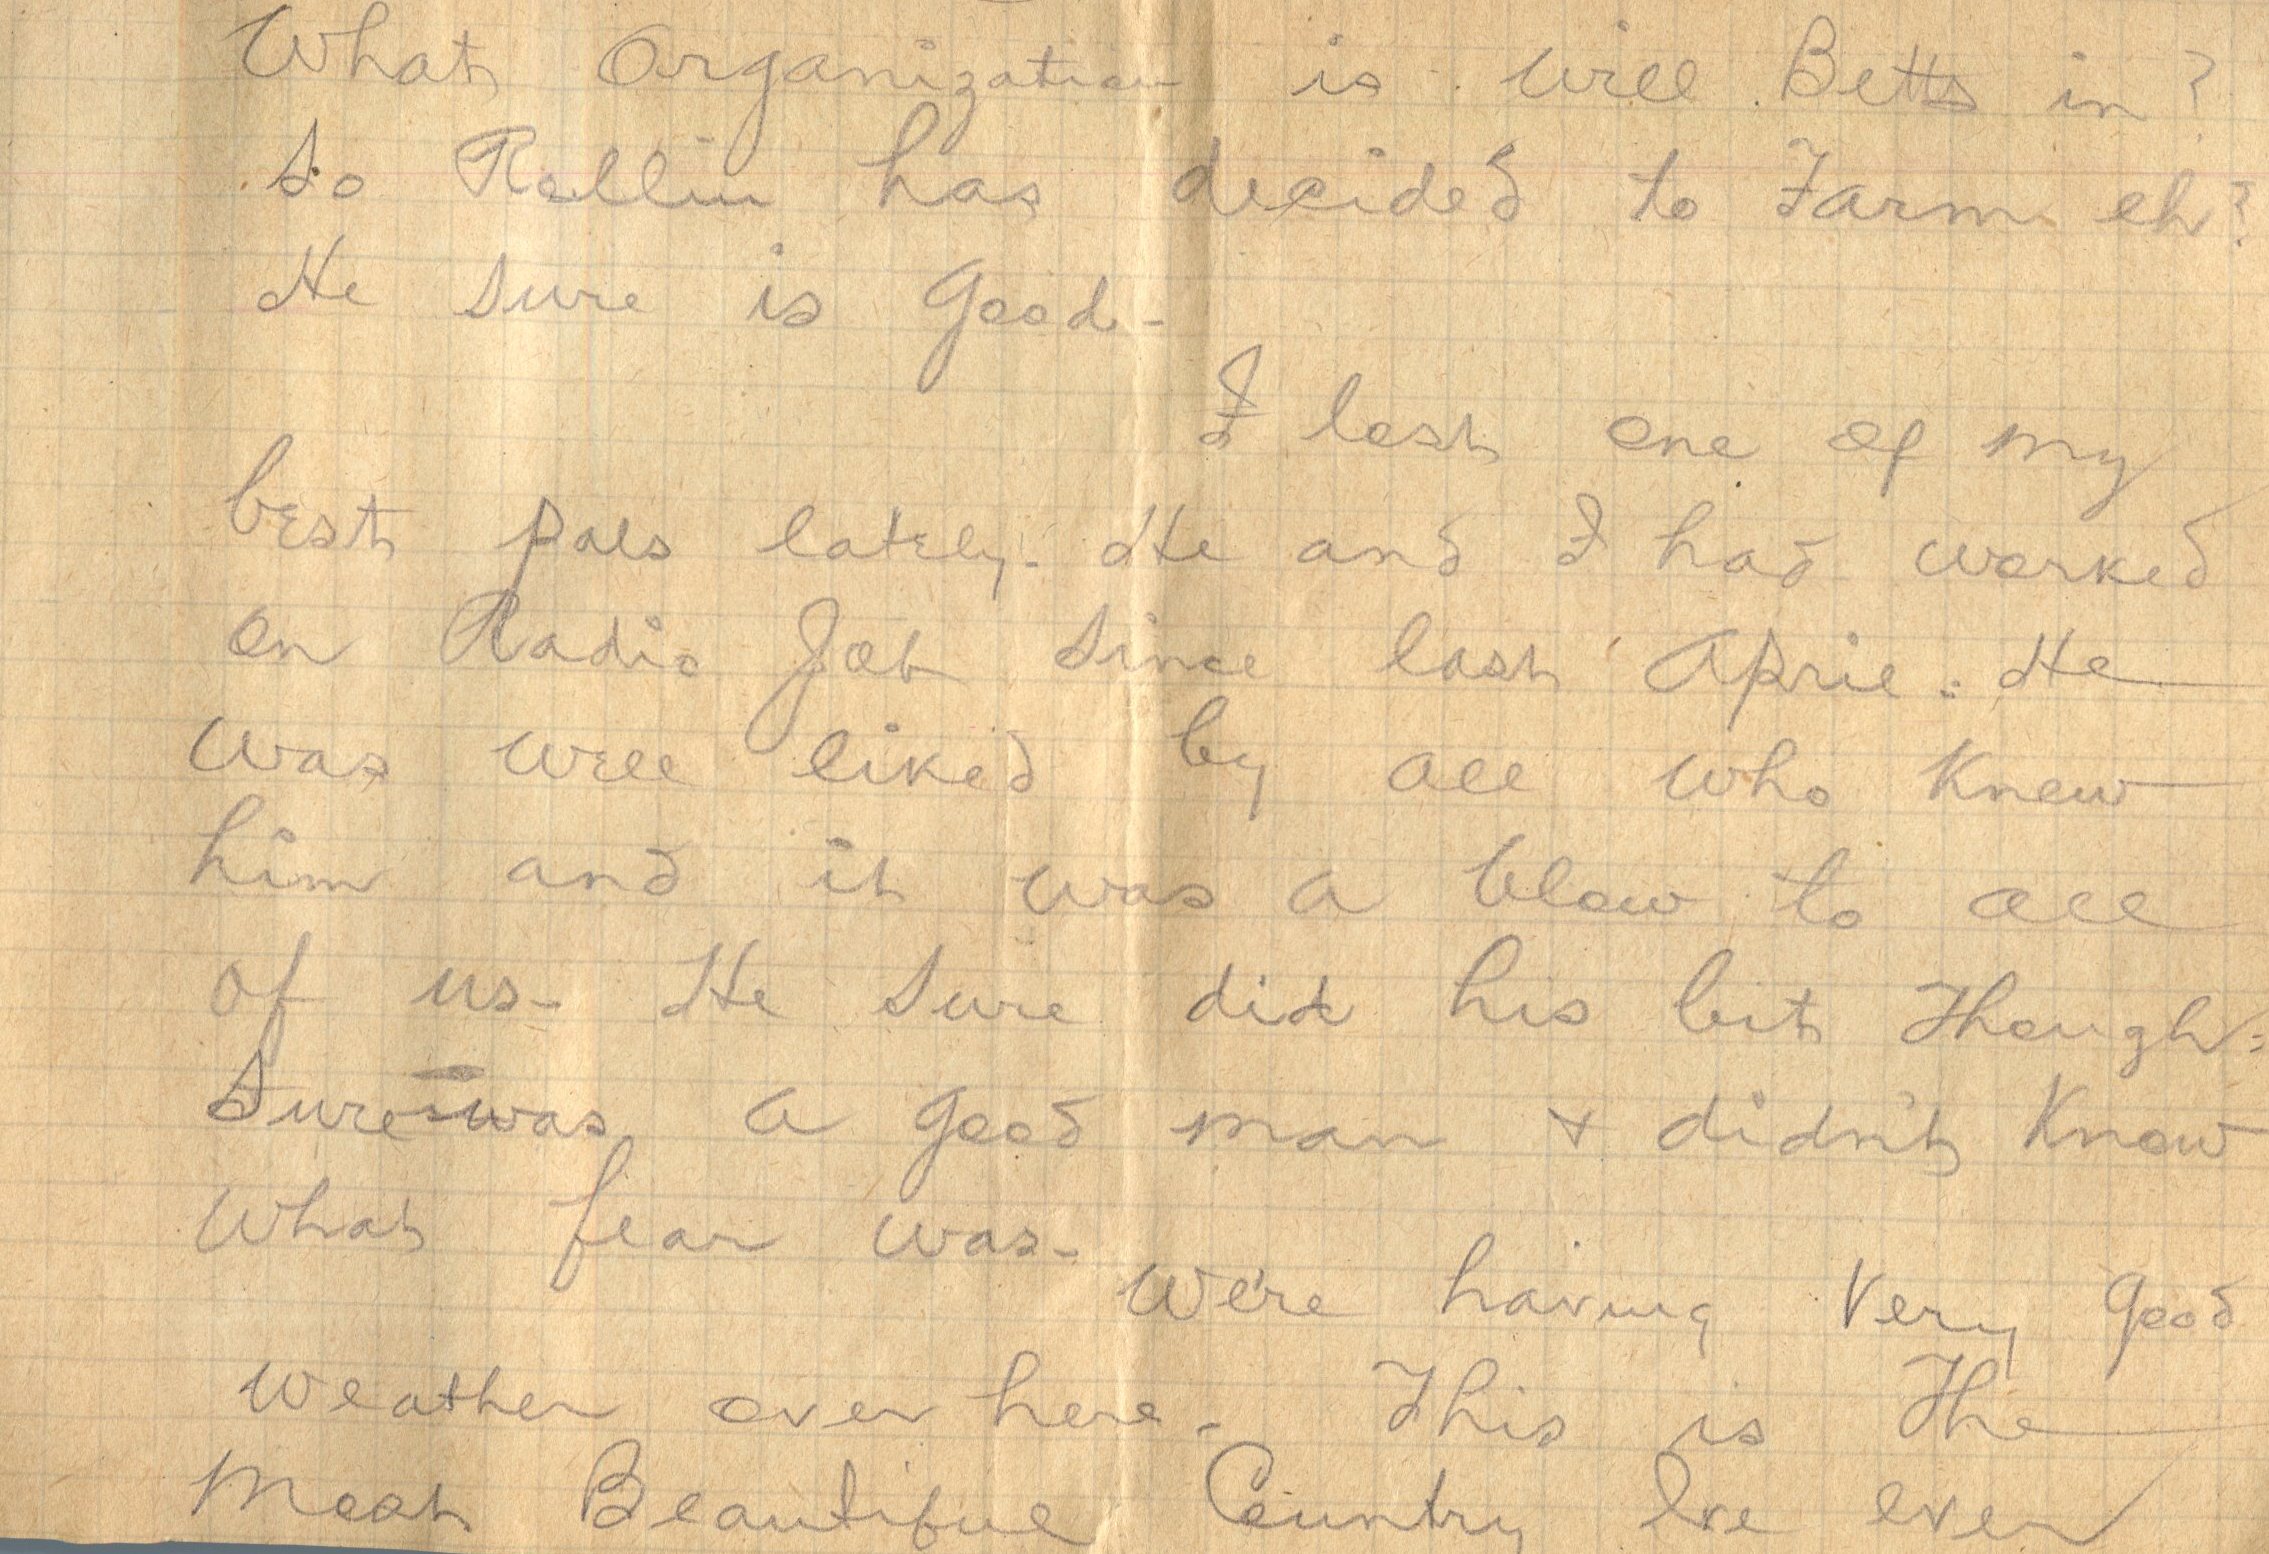 What Organization is Will Betts in?
So Rollin has decided to Farm eh?
He sure is good-
I lost one of my
best pals lately. He and I had worked
on Radio Job since last April. He
was well liked by all who knew
him and it was a blow to all
of us- He sure did his bit though-
Sure was a good man & didn't know
what fear was-
We're having very good
weather over here- This is the
Most Beautiful Country I've ever